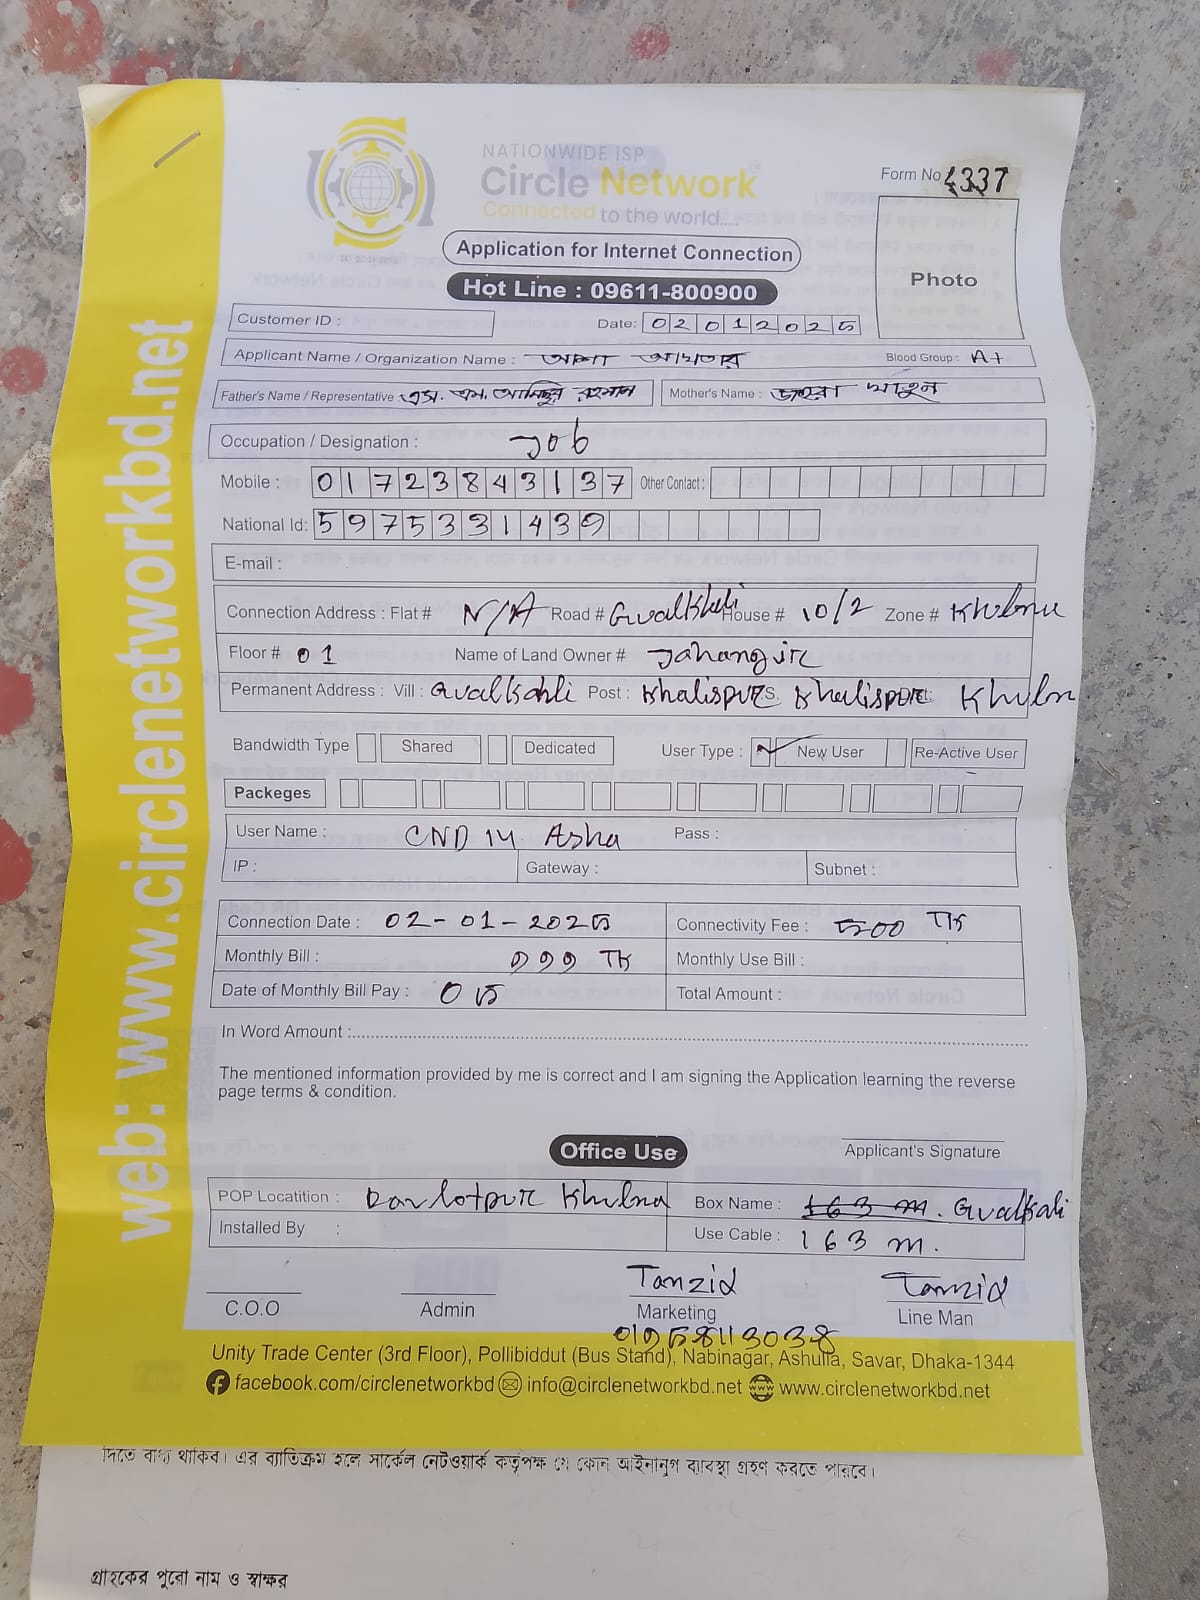 NATIONWIDE ISP
Circle Network
Connected to the world.....
Form No 4337
Application for Internet Connection
Photo
Hot Line : 09611-800900
Customer ID :
Date: 02012025
Applicant Name / Organization Name : আশা আখতার
Blood Group : A+
Father's Name / Representative এস. এম. আনিছুর রহমান
Mother's Name : জহুরা খাতুন
Occupation / Designation : Job
Mobile : 01723843137 Other Contact :
National Id: 5975331439
E-mail :
Connection Address : Flat # N/A Road # Gualkhali House # 10/2 Zone # Khulna
Floor # 01 Name of Land Owner # Jahangir
Permanent Address : Vill : Gualkahli Post : Khalispur P.S. Khalispur Dist: Khuln
Bandwidth Type Shared Dedicated User Type : ✓ New User Re-Active User
Packeges
User Name : CND 14 Asha Pass :
IP : Gateway : Subnet :
Connection Date : 02-01-2025 Connectivity Fee : 500 TK
Monthly Bill : 999 TK Monthly Use Bill :
Date of Monthly Bill Pay : 05 Total Amount :
In Word Amount :
The mentioned information provided by me is correct and I am signing the Application learning the reverse
page terms & condition.
Applicant's Signature
Office Use
POP Locatition : Daulotpur Khulna Box Name : 163 m. Gualkali
Installed By : Use Cable : 163 m.
Tanzid Tanzid
C.O.O Admin Marketing Line Man
01958113038
Unity Trade Center (3rd Floor), Pollibiddut (Bus Stand), Nabinagar, Ashulia, Savar, Dhaka-1344
facebook.com/circlenetworkbd info@circlenetworkbd.net www.circlenetworkbd.net
web: www.circlenetworkbd.net
দিতে বাধ্য থাকিব। এর ব্যতিক্রম হলে সার্কেল নেটওয়ার্ক কর্তৃপক্ষ যে কোন আইনানুগ ব্যবস্থা গ্রহণ করতে পারবে।
গ্রাহকের পুরো নাম ও স্বাক্ষর